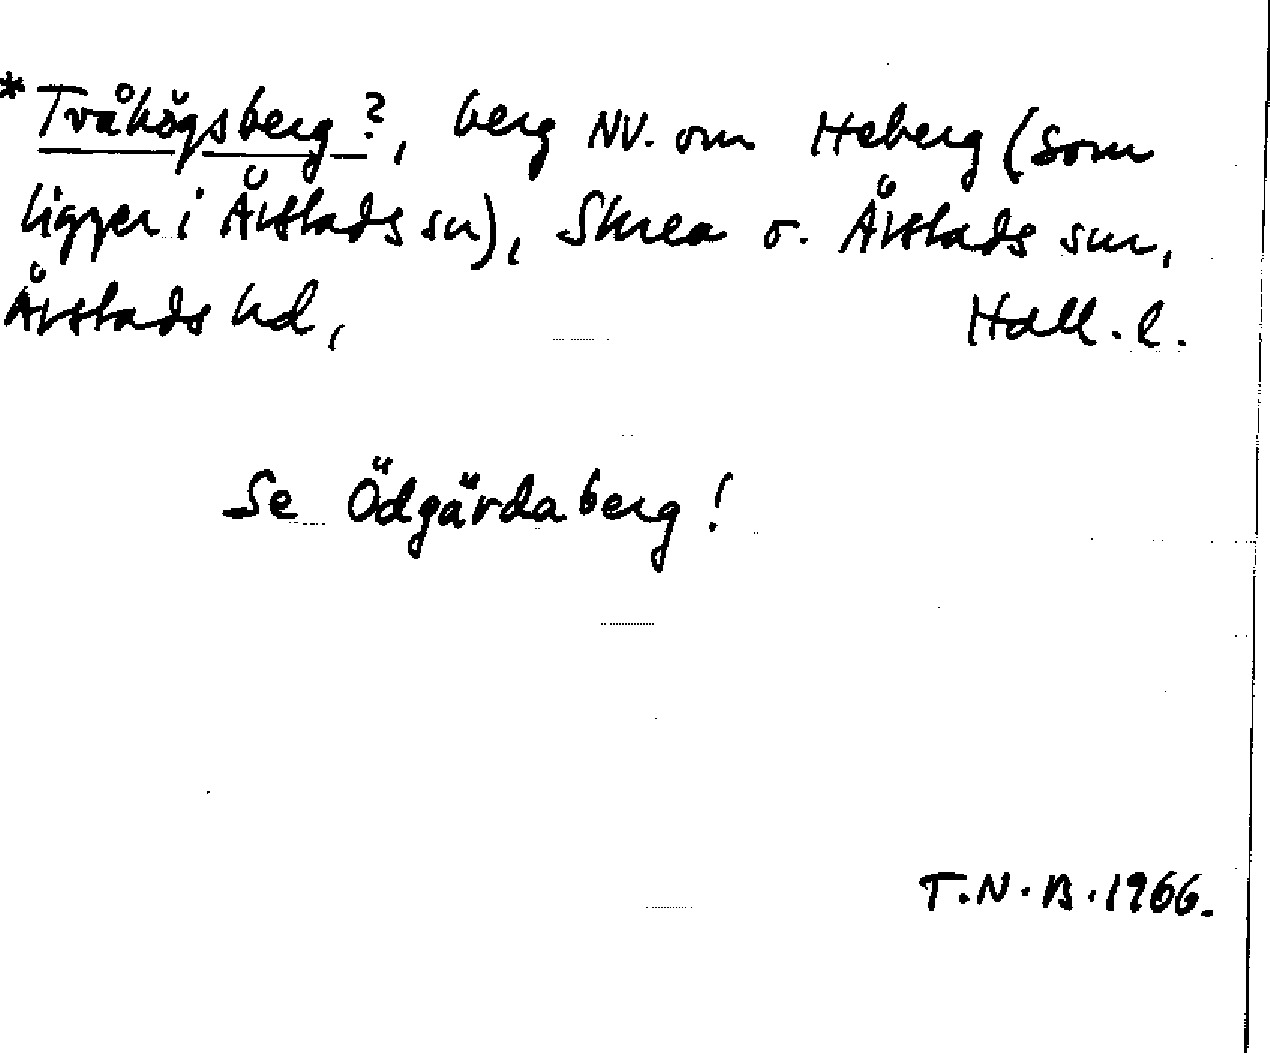 * Tvåhögsberg?, berg NV. om Heberg (som
ligger i Årstads sn), Skrea o. Årstads snr,
Årstads hd, Hall. l.
Se Ödgärdaberg!
T.N.B. 1966.